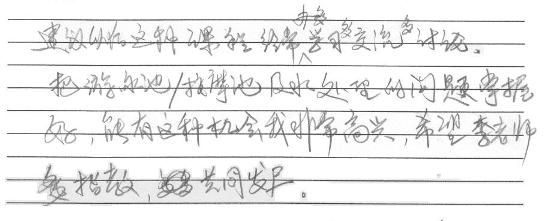 建议以后这种课程经常办多学习多交流多讨论。
把游泳池/按摩池及水处理的问题掌握
好,能有这种机会我非常高兴,希望李老师
多指教,共同发展。